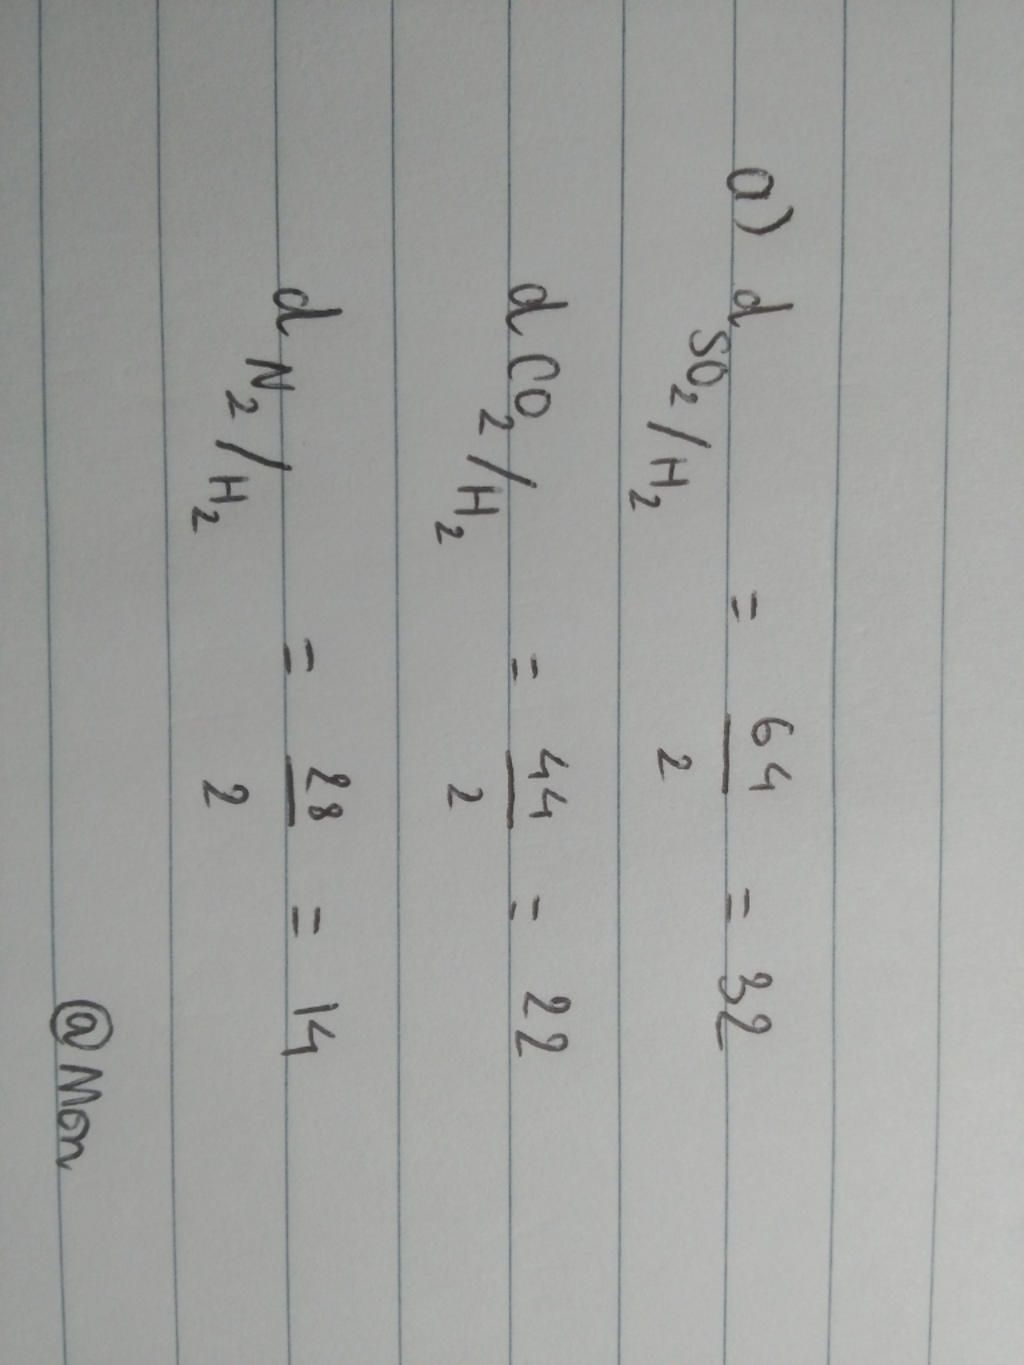 a) d SO₂/H₂ = 64/2 = 32
d CO₂/H₂ = 44/2 = 22
d N₂/H₂ = 28/2 = 14
@Mon